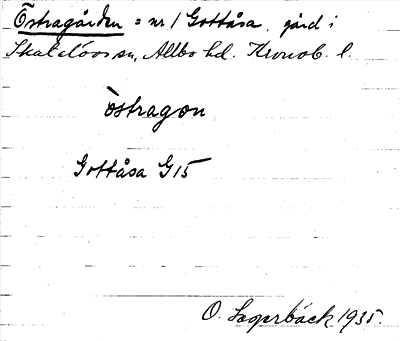 Östragården = nr 1 Gottåsa, gård i
Skatelövs sn, Allbo hd. Kronob. l.
östragon
Gottåsa G15
O. Lagerbäck 1935.